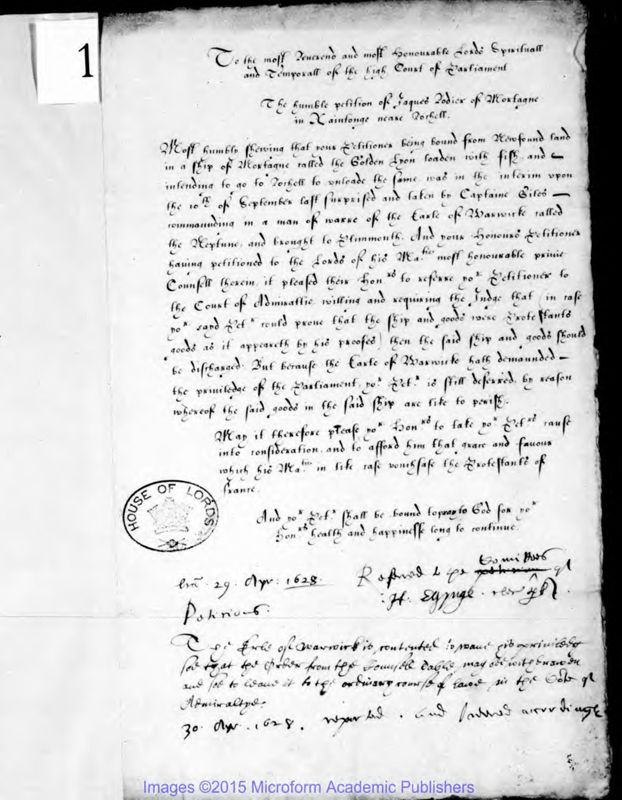 1
To the most Reverend and most Honourable Lords Spirituall
and Temporall of the high Court of Parliament
The humble petition of Jaques Rodier of Mortagne
in Xaintonge neare Rochell.
Most humbly shewing that your Petitioner being bound from Newfound land
in a ship of Mortagne called the Golden Lyon loaden with fish and
intending to go to Rochell to unloade the same was in the interim upon
the 10th of September last surprised and taken by Captaine Giles
commaunding in a man of warre of the Earle of Warwicke called
the Neptune, and brought to Plimmouth. And your Honours Petitioner
having petitioned to the Lords of his Matie most honourable privie
Counsell therein, it pleased their Honrs to referre yor Petitioner to
the Court of Admiraltie willing and requiring the Judge that (in case
yor sayd Petr could prove that the ship and goods were Protestants
goods as it appeareth by his proofes) then the said ship and goods should
be discharged. But because the Earle of Warwicke hath demaunded
the priviledge of the Parliament, yor Petr is still deferred, by reason
whereof the said goods in the said ship are like to perish.
May it therefore please yor Honrs to take yor Petrs cause
into consideration, and to afford him that grace and favour
which his Matie in like case vouchsafe the Protestants of
France.
And yor Petr shall be bound to pray to God for yor
Honrs health and happinesse long to continue.
HOUSE OF LORDS
29. Apr. 1628. Referred to the Comittees
Peticions.
The Erle of Warwick is contented to wave his priviledg
soe that the Order from the Counsell Table may be withdrawen
and soe to leave it to the ordinary course of lawe in the Corte of
Admiraltye.
30. Apr. 1628. reported. and Ordered accordingly
Images ©2015 Microform Academic Publishers